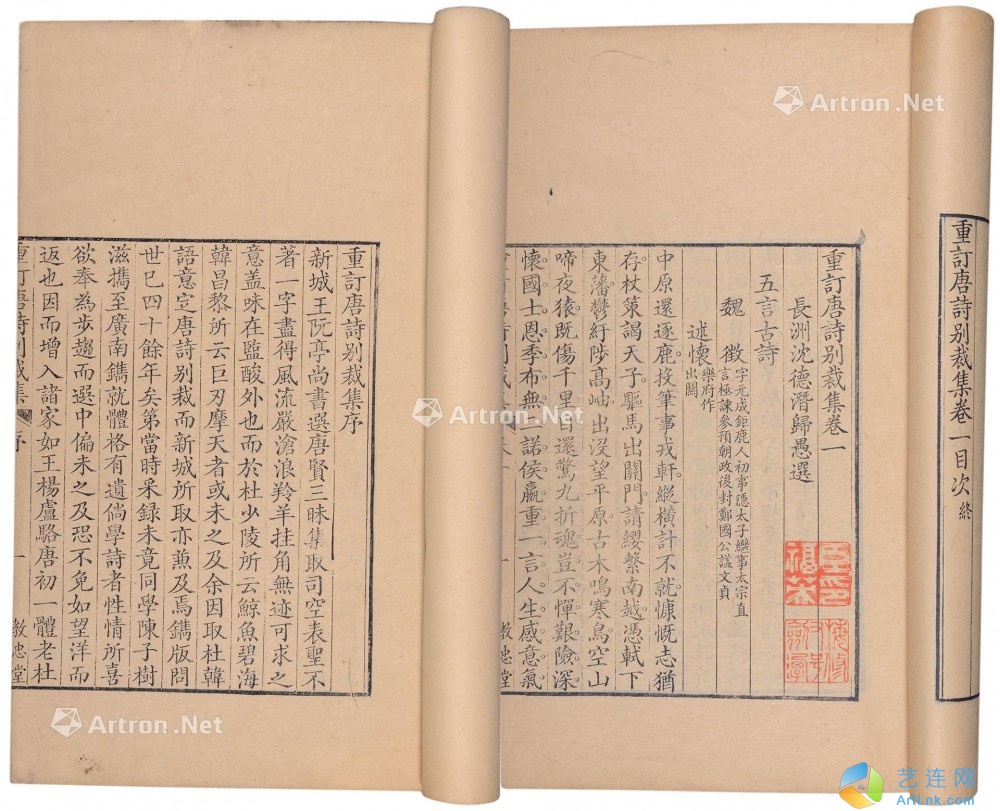 重訂唐詩別裁集卷一目次終
重訂唐詩別裁集卷一
長洲沈德潛歸愚選
五言古詩
魏徵 字元成鉅鹿人初事隱太子繼事太宗直
言極諫參預朝政後封鄭國公謚文貞
述懷 樂府作
出關
中原還逐鹿投筆事戎軒縱橫計不就慷慨志猶
存杖策謁天子驅馬出關門請纓繫南越憑軾下
東藩鬱紆陟高岫出沒望平原古木鳴寒鳥空山
啼夜猿既傷千里目還驚九折魂豈不憚艱險深
懷國士恩季布無二諾侯嬴重一言人生感意氣
教忠堂
重訂唐詩別裁集序
新城王阮亭尚書選唐賢三昧集取司空表聖不
著一字盡得風流嚴滄浪羚羊挂角無迹可求之
意盖味在鹽酸外也而於杜少陵所云鯨魚碧海
韓昌黎所云巨刃摩天者或未之及余因取杜韓
語意定唐詩別裁而新城所取亦兼及焉鐫版問
世已四十餘年矣第當時采録未竟同學陳子樹
滋攜至廣南鐫就體格有遺倘學詩者性情所喜
欲奉為步趨而選中偏未之及恐不免如望洋而
返也因而增入諸家如王楊盧駱唐初一體老杜
重訂唐詩別裁集 序 一 教忠堂
Artron.Net
Artron.Net
Artron.Net
Artron.Net
艺连网
ArtLnk.com